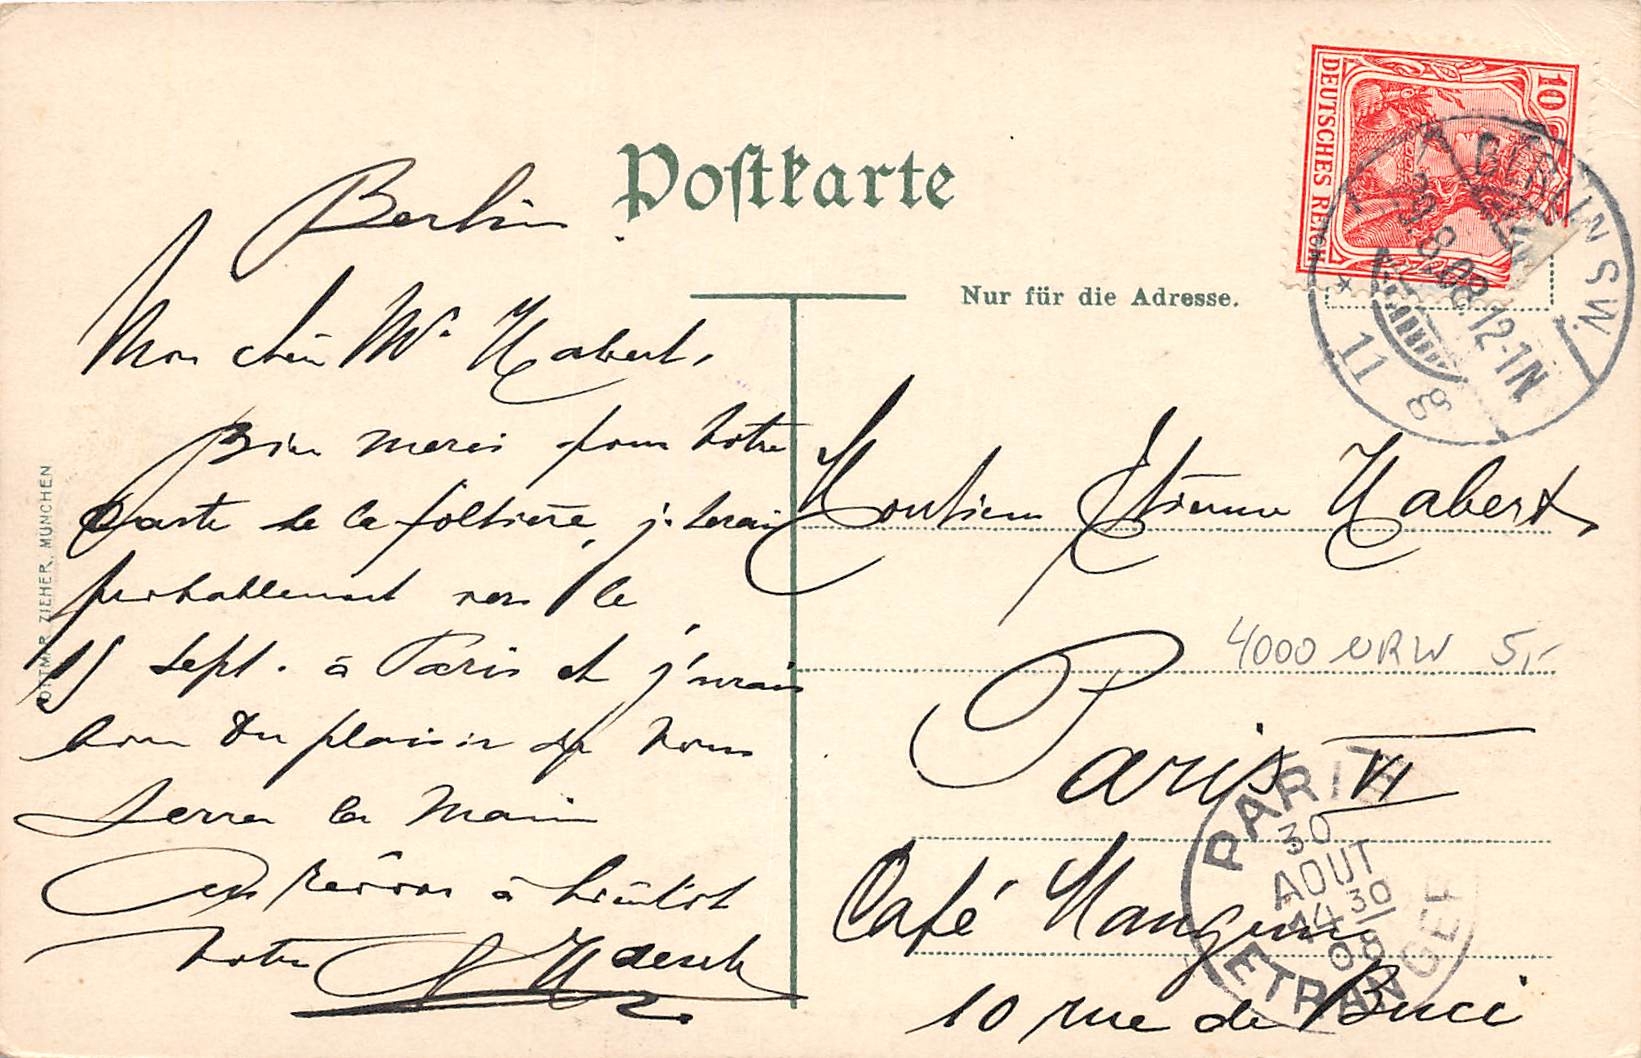 Postkarte
Nur für die Adresse.
10
DEUTSCHES REICH
BERLIN SW.
12-1N
11
Berlin
Mon cher Mr Habert,
Bien merci pour votre
Carte de la
probablement vers le
15 Sept. à Paris et j'aurais
bien du plaisir de vous
serrer la main
Au revoir à bientôt
votre
Monsieur Etienne Habert
Paris VI
Café Mangin
10 rue de Buci
4000 NRW 5,-
PARIS
30
AOUT
14 30
08
ETRANGER
OTTMAR ZIEHER, MÜNCHEN